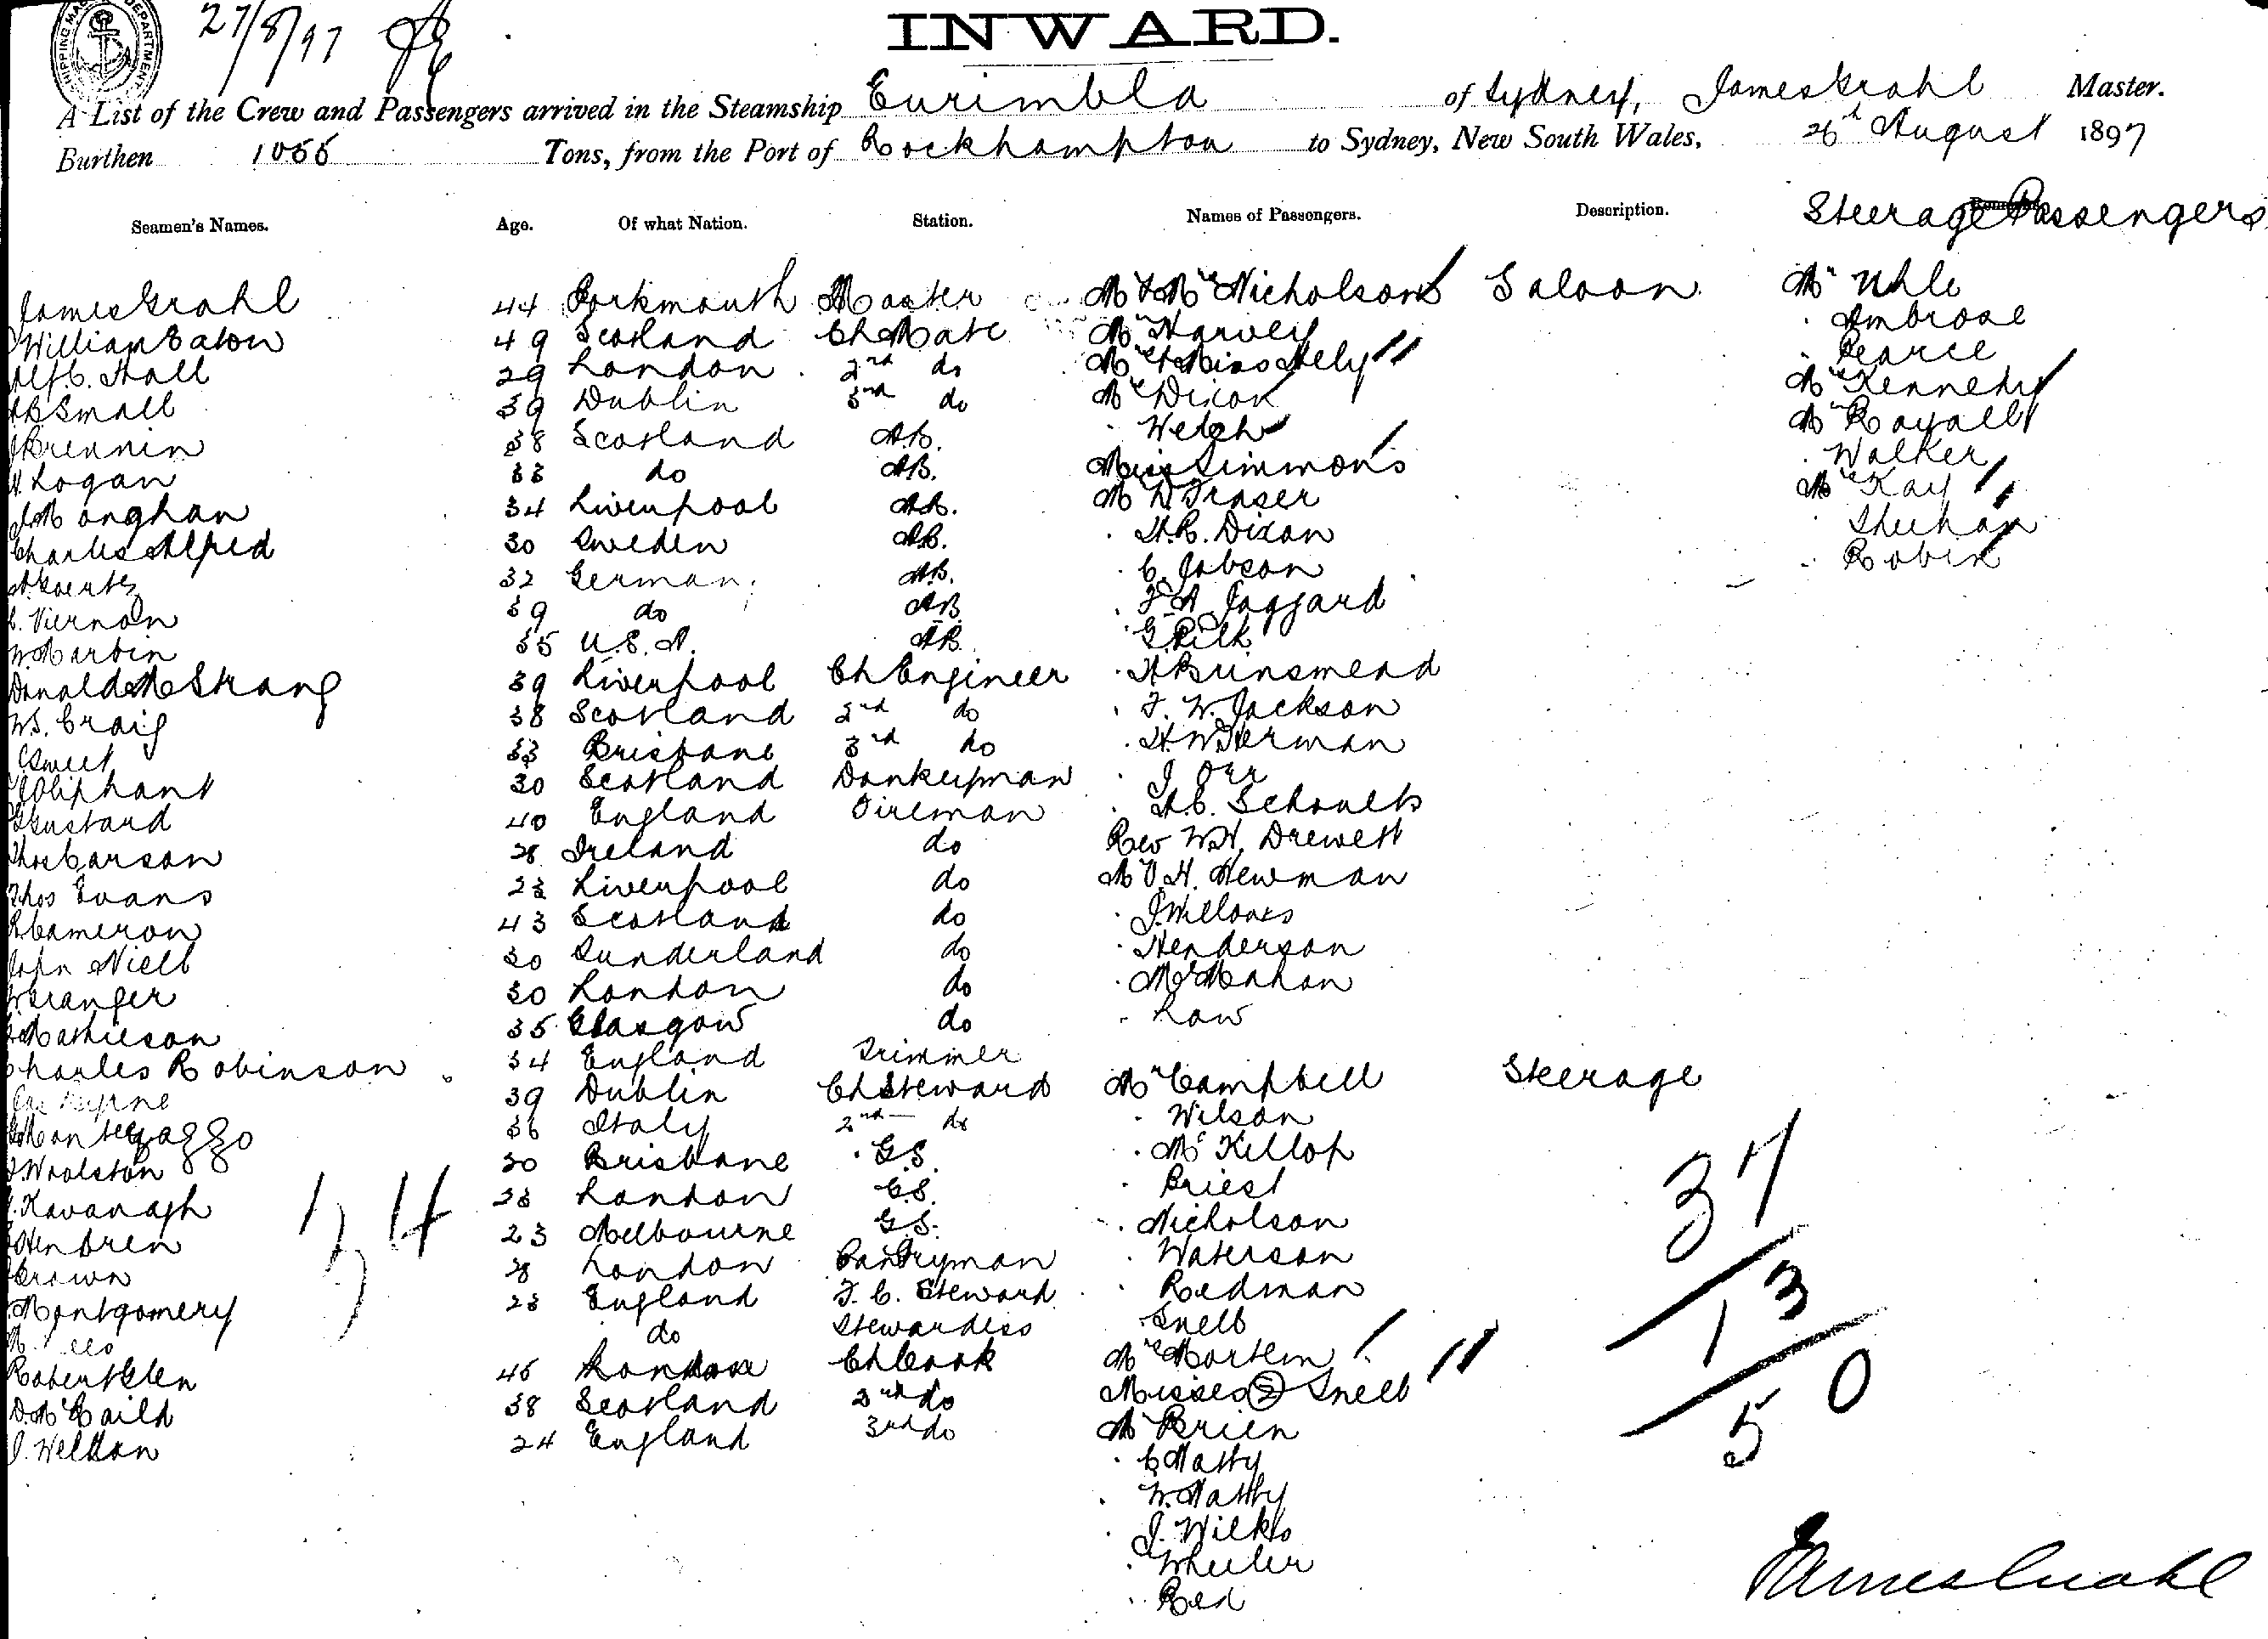 SHIPPING MA DEPARTMENT
27/8/97
INWARD.
A List of the Crew and Passengers arrived in the Steamship Eurimbla of Sydney, James Grahl Master.
Burthen 1055 Tons, from the Port of Rockhampton to Sydney, New South Wales, 26th August 1897
Seamen's Names. Age. Of what Nation. Station. Names of Passengers. Description. Steerage Passengers
James Grahl 44 Portsmouth Master Mr & Mrs Nicholson Saloon Mr Uhle
William Eaton 49 Scotland Ch Mate Mr Harvey Ambrose
Alf. C. Hall 29 London 2nd do Mrs & Miss Hely Pearce
Small 39 Dublin 3rd do Mrs Dixon Mrs Kennedy
Brennin 38 Scotland A.B. Welch Mr Royall
Logan 33 do A.B. Miss Simmons Walker
J. Monghan 34 Liverpool A.B. Mr D. Fraser Mrs Kay
Charles Alfred 30 Sweden A.B. H.R. Dixon Sheehan
32 German A.B. C. Jobson Robin
C. Viernon 39 do A.B. F. A. Jaggard
W. Martin 35 U.S.A. A.B. G. Pilk
Donald McStrang 39 Liverpool Ch Engineer H Brinsmead
W.S. Craig 38 Scotland 2nd do F. W. Jackson
Sweet 33 Brisbane 3rd do H. W. Herman
Oliphant 30 Scotland Donkeyman J. Orr
Gustard 40 England Fireman H.C. Schoults
Thos Carson 28 Ireland do Rev W.H. Drewett
Thos Evans 23 Liverpool do Mr V.H. Newman
Cameron 43 Scotland do
John Niell 30 Sunderland do Henderson
Granger 30 London do McMahon
Mathieson 35 Glasgow do Low
Charles Robinson 34 England Trimmer
Byrne 39 Dublin Ch Steward Mr Campbell Steerage
36 Italy 2nd do Wilson
Woolston 30 Brisbane G.S. McKillop
Kavanagh 23 London G.S. Priest
23 Melbourne G.S. Nicholson
Brown 28 London Pantryman Waterson
Montgomery 23 England F.C. Steward Redman
do Stewardess Snell
Robert Glen 45 London Ch Cook Mrs Mortem
D. McCaild 38 Scotland 2nd do Misses (2) Snell
J. Weldon 24 England 3rd do Mr Brien
C. Natty
W. Natty
J. Wilks
Wheeler
Red
34
37
13
50
James Grahl